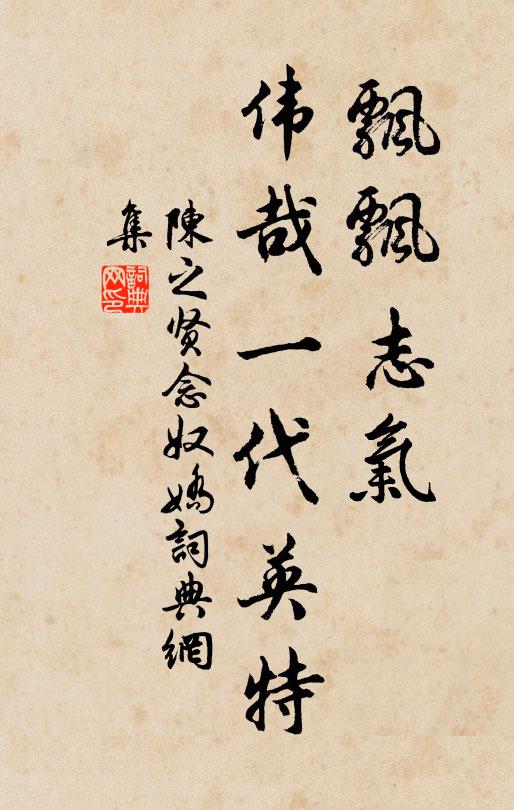 飄飄志氣
伟哉一代英特
陳之贤念奴嬌詞典網
集
詞典
网印